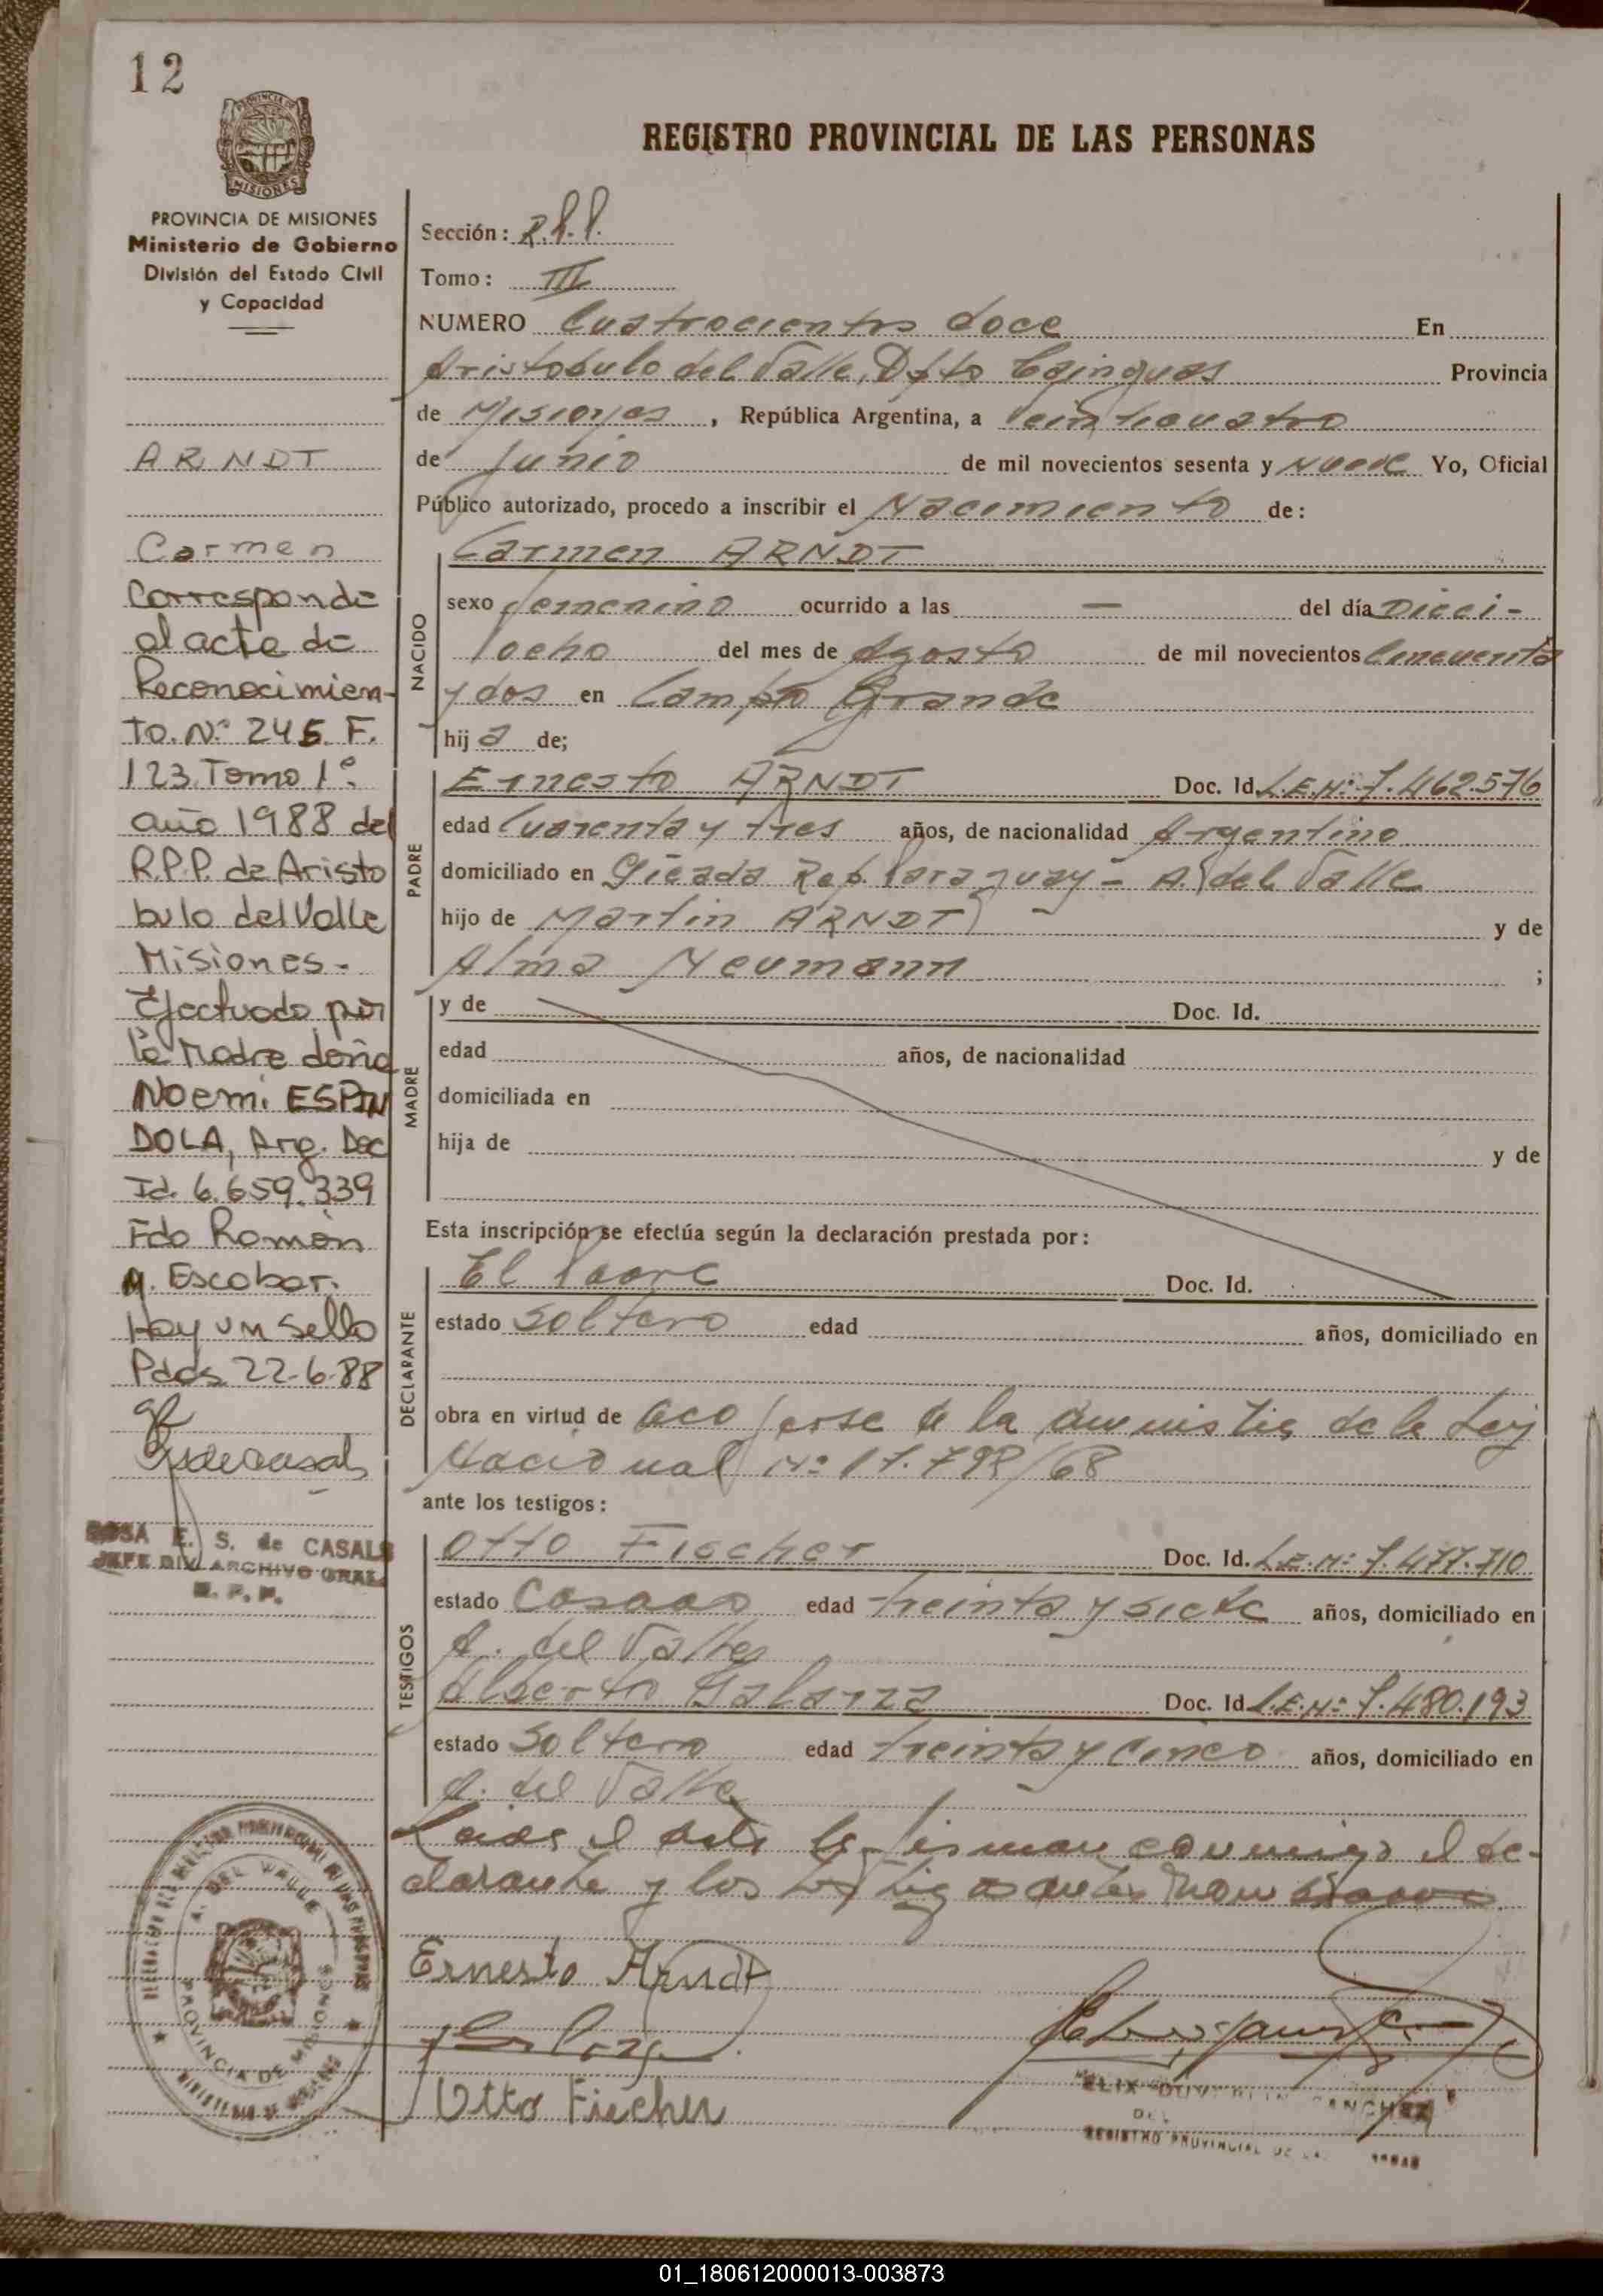 12
PROVINCIA DE
MISIONES
PROVINCIA DE MISIONES
Ministerio de Gobierno
División del Estado Civil
y Capacidad
ARNDT
Carmen
Corresponde
al acta de
Reconocimien-
to. Nº 245 F.
123. Tomo 1º
año 1988 del
R.P.P. de Aristo
bulo del Valle
Misiones-
Efectuado por
la Madre doña
Noemi ESPIN
DOLA, Arg. Doc
Id. 6.659.339
Fdo Ramón
A. Escobar.
Hay un sello
Pdas 22-6-88
ROSA E. S. de CASALS
JEFE DIV. ARCHIVO GRAL.
R. P. P.
REGISTRO PROVINCIAL DE LAS PERSONAS
Sección: R.P.P.
Tomo: III
NUMERO Cuatrocientos doce En
Aristobulo del Valle, Dpto Cainguas Provincia
de Misiones, República Argentina, a Veinticuatro
de Junio de mil novecientos sesenta y Nueve Yo, Oficial
Público autorizado, procedo a inscribir el Nacimiento de:
NACIDO
Carmen ARNDT
sexo femenino ocurrido a las — del día Dieci-
ocho del mes de Agosto de mil novecientos Cincuenta
y dos en Campo Grande
hij a de;
PADRE
Ernesto ARNDT Doc. Id. L.E.Nº 7.462.576
edad Cuarenta y tres años, de nacionalidad Argentino
domiciliado en Picada Rep. Paraguay - A. del Valle
hijo de Martin ARNDT y de
Alma Neumann ;
MADRE
y de Doc. Id.
edad años, de nacionalidad
domiciliada en
hija de y de
Esta inscripción se efectúa según la declaración prestada por:
DECLARANTE
El Padre Doc. Id.
estado Soltero edad años, domiciliado en
obra en virtud de acojerse a la amnistia de la Ley
Nacional Nº 17.798/68
ante los testigos:
TESTIGOS
Otto Fiecher Doc. Id. L.E.Nº 7.477.710
estado Casado edad treinta y siete años, domiciliado en
A. del Valle
Alberto Galarza Doc. Id. L.E.Nº 7.480.193
estado Soltero edad treinta y cinco años, domiciliado en
A. del Valle
Leida el acta la firman conmigo el de-
clarante y los testigos antes
Ernesto Arndt
Otto Fiecher
SANCHEZ
REGISTRO PROVINCIAL DE LAS
A. DEL VALLE
PROVINCIA DE MISIONES
01_180612000013-003873